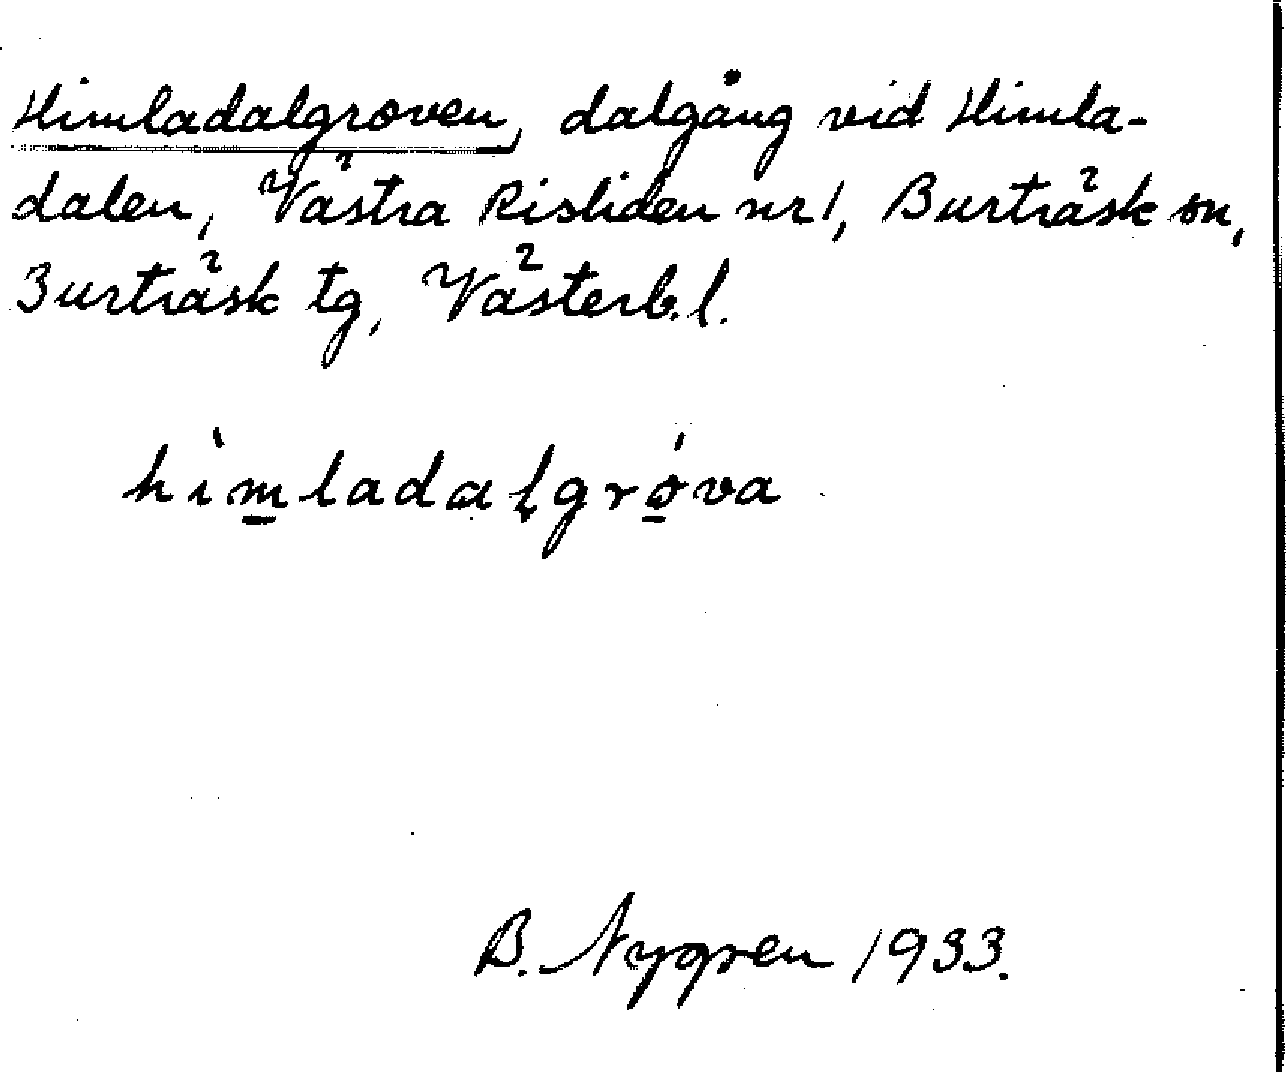 Himladalgroven, dalgång vid Himla-
dalen, Västra Risliden nr 1, Burträsk sn,
Burträsk tg, Västerb. l.
hìm̲ladaḷgró̲va
B. Nygren 1933.